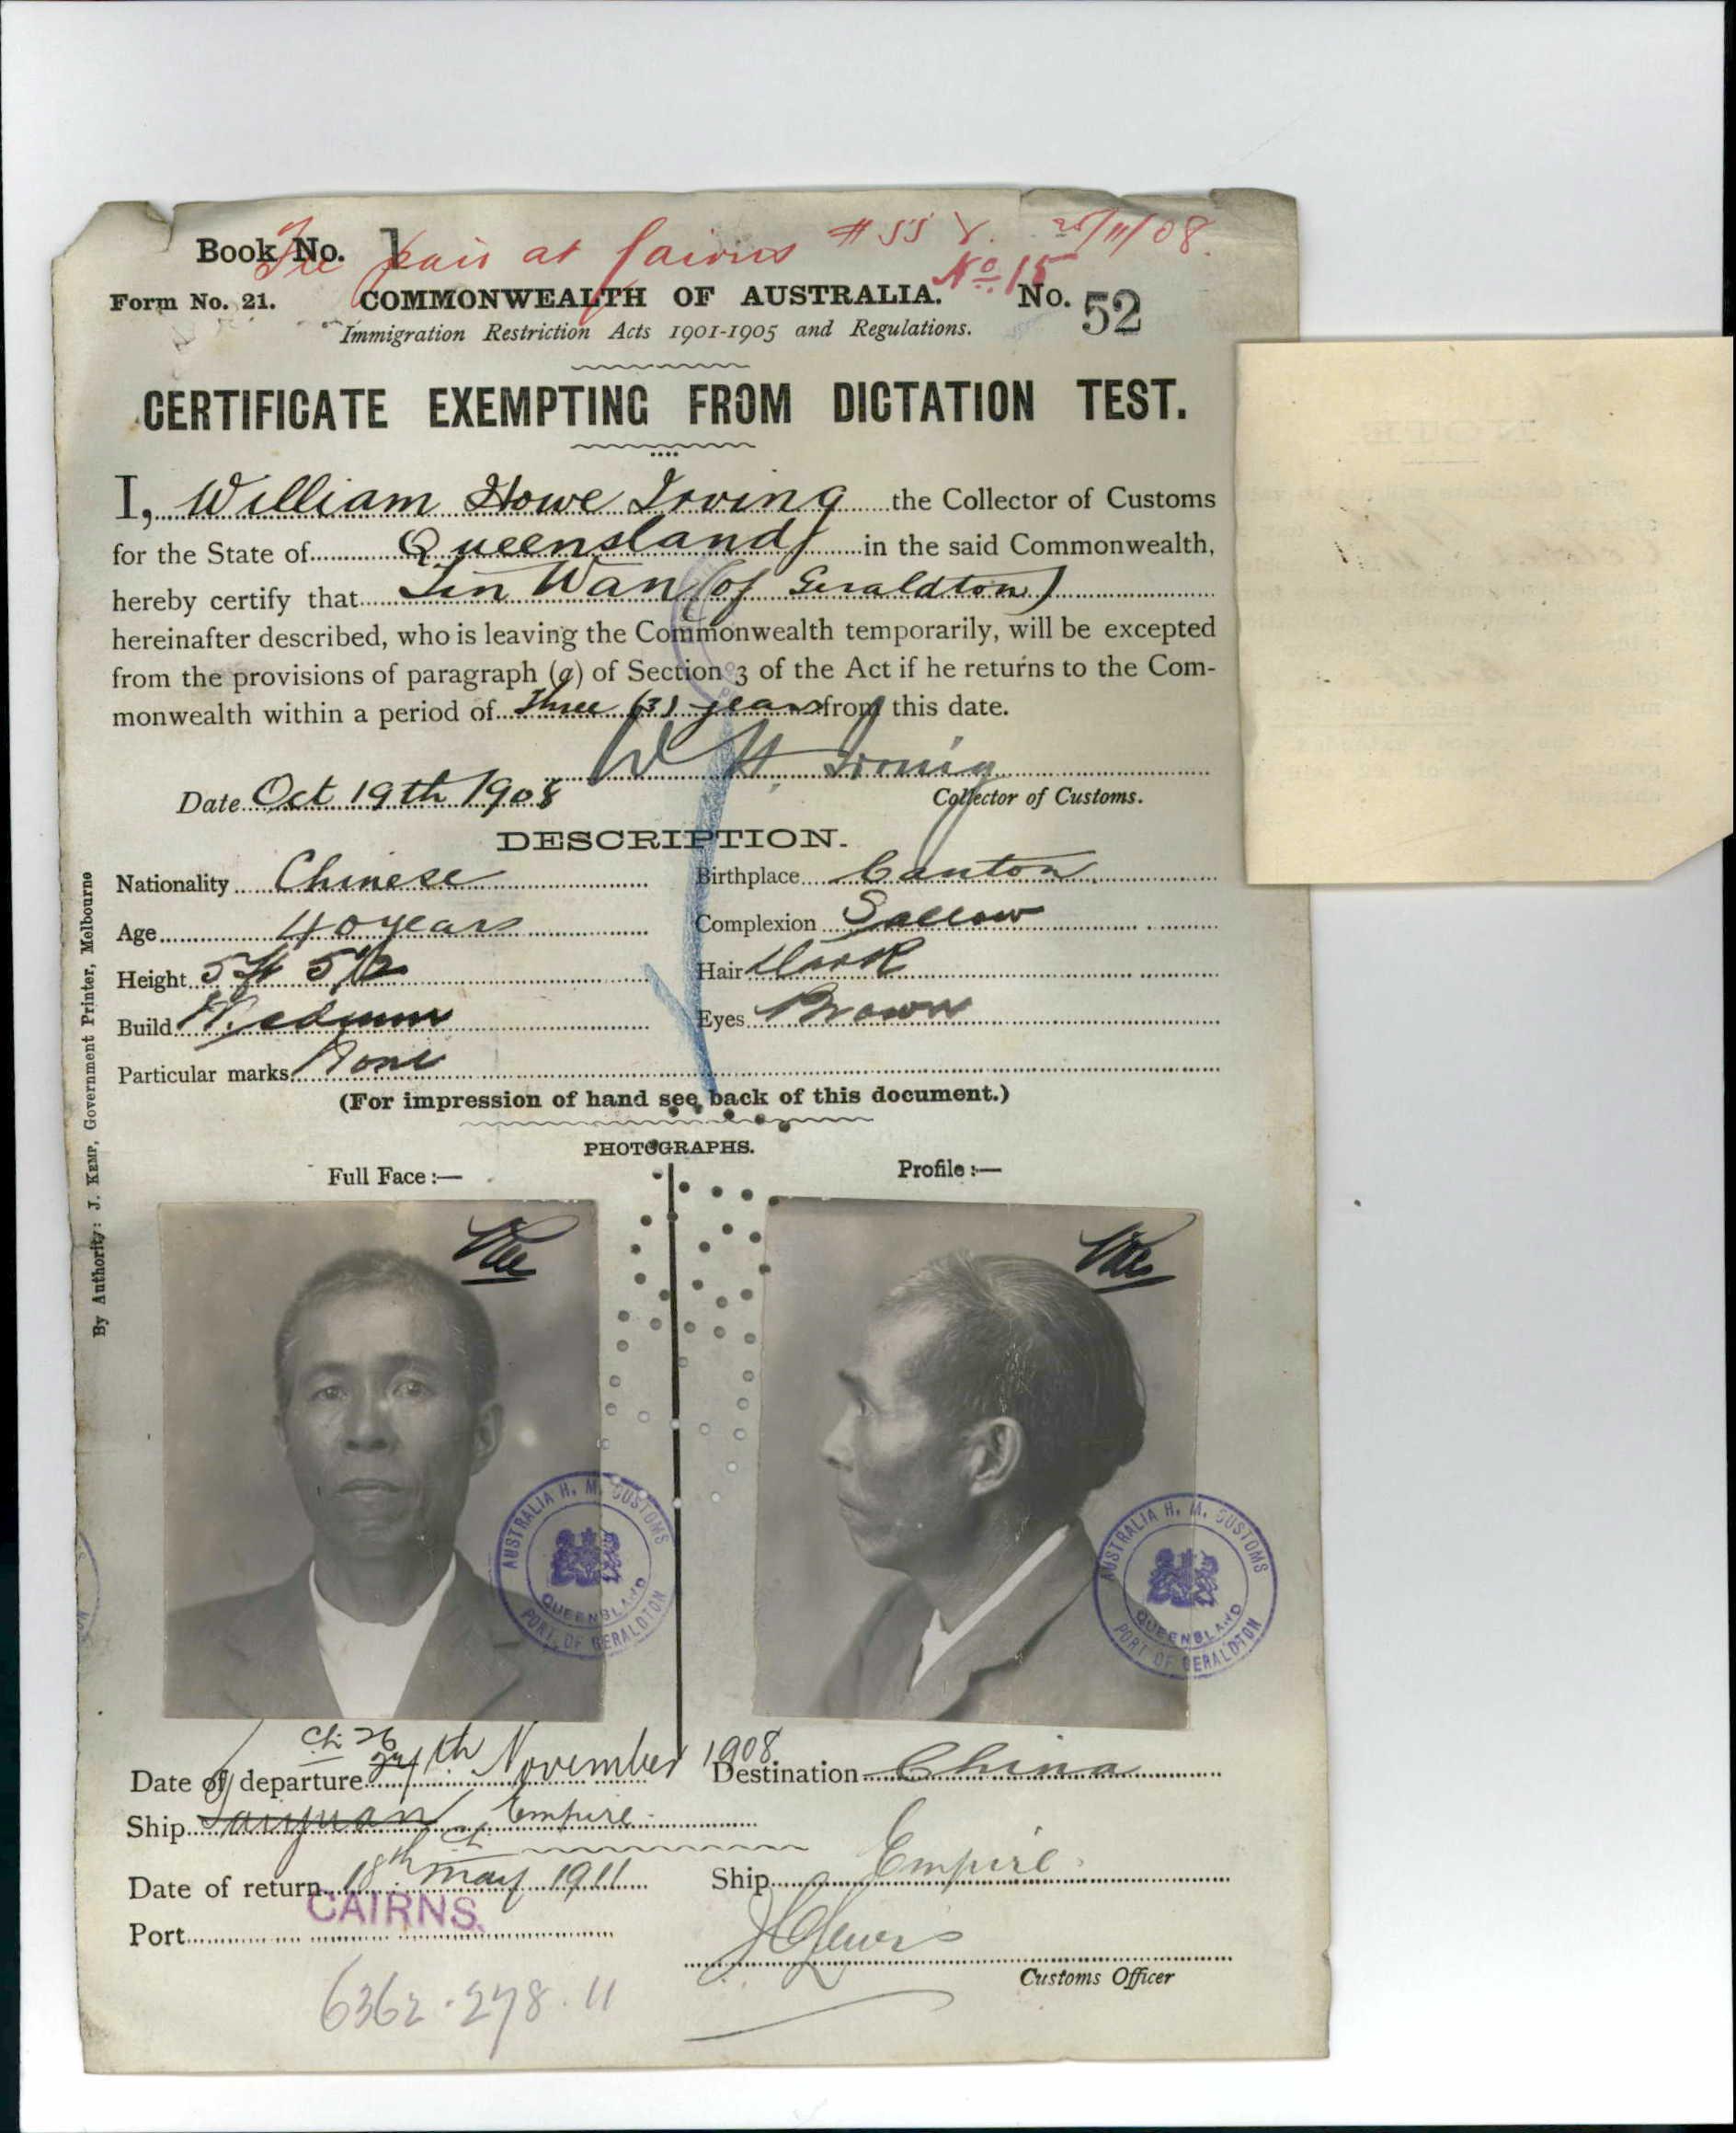 Book No. 1
Fee paid at Cairns # 558. 25/11/08.
No. 15
Form No. 21. COMMONWEALTH OF AUSTRALIA. No. 52
Immigration Restriction Acts 1901-1905 and Regulations.
CERTIFICATE EXEMPTING FROM DICTATION TEST.
I, William Howe Irving the Collector of Customs
for the State of Queensland in the said Commonwealth,
hereby certify that Lin Wan (of Geraldton)
hereinafter described, who is leaving the Commonwealth temporarily, will be excepted
from the provisions of paragraph (a) of Section 3 of the Act if he returns to the Com-
monwealth within a period of Three (3) years from this date.
W H Irving
Date Oct 19th 1908 Collector of Customs.
DESCRIPTION.
Nationality Chinese Birthplace Canton
Age 40 years Complexion Sallow
Height 5 ft 5 1/2 Hair Dark
Build Medium Eyes Brown
Particular marks None
(For impression of hand see back of this document.)
PHOTOGRAPHS.
Full Face :— Profile :—
AUSTRALIA H. M. CUSTOMS QUEENSLAND PORT OF GERALDTON
AUSTRALIA H. M. CUSTOMS QUEENSLAND PORT OF GERALDTON
26
Date of departure 24th November 1908 Destination China
Ship Taiyuan Empire
Date of return 18th May 1911 Ship Empire
Port CAIRNS.
Customs Officer
6362.278.11
By Authority: J. KEMP, Government Printer, Melbourne
NOTE